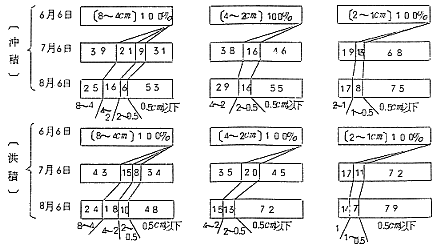 6月6日 (8~4cm) 100% (4~2cm) 100% (2~1cm) 100%
(沖積) 7月6日 39 21 9 31 38 16 46 19 13 68
8月6日 25 16 6 53 29 16 55 17 8 75
8~4 4~2 2~0.5 0.5cm以下 4~2 2~0.5 0.5cm以下 2~1 1~0.5 0.5cm以下
6月6日 (8~4cm) 100% (4~2cm) 100% (2~1cm) 100%
(洪積) 7月6日 43 15 8 34 35 20 45 17 11 72
8月6日 24 18 10 48 15 13 72 14 7 79
8~4 4~2 2~0.5 0.5cm以下 4~2 2~0.5 0.5cm以下 1 1~0.5 0.5cm以下